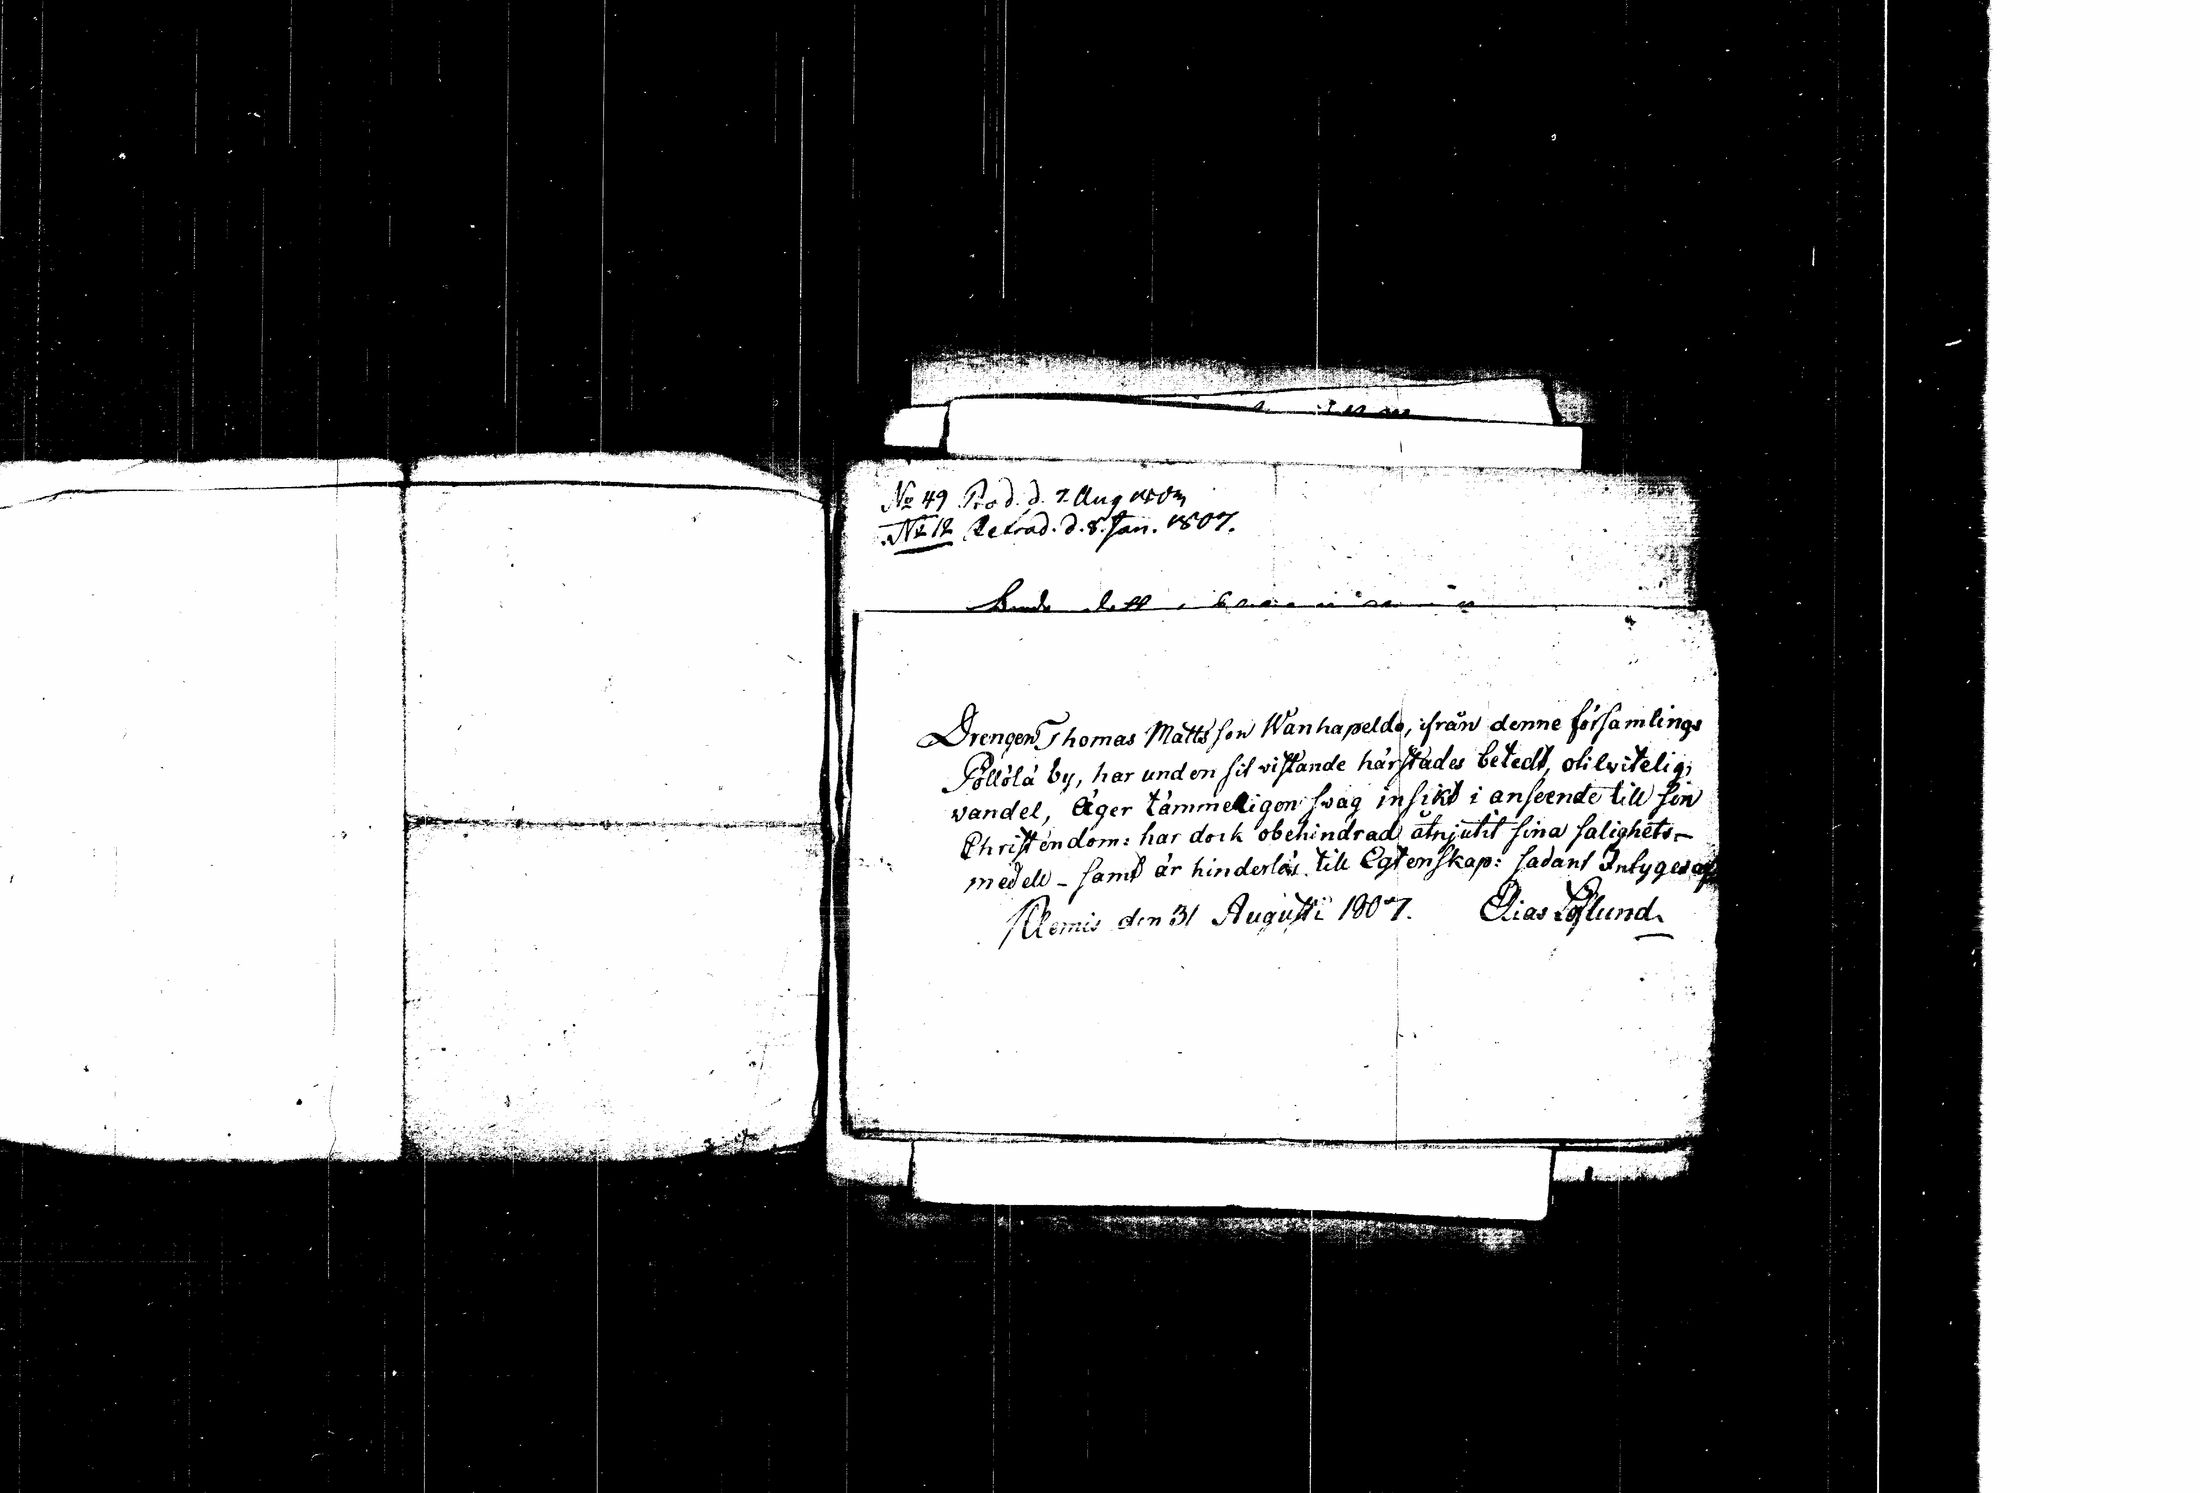 No 49 Prod. d. 7. Aug
No 12 Extrad. d. 8. Jan. 1807.
Drengen Thomas Mattsson Wanhapeldo, ifrån denne församlings
Pöllölä by, har under sit vistande härstädes betedt, otilvitelig
vandel, äger tämmeligen swag insikt i anseende till sin
Christendom: har dock obehindrad åtnjutit sina salighets-
medell - samt är hinderlös till Egtenskap: sadant Intyges af
Klemis den 31 Augusti 1807. Elias